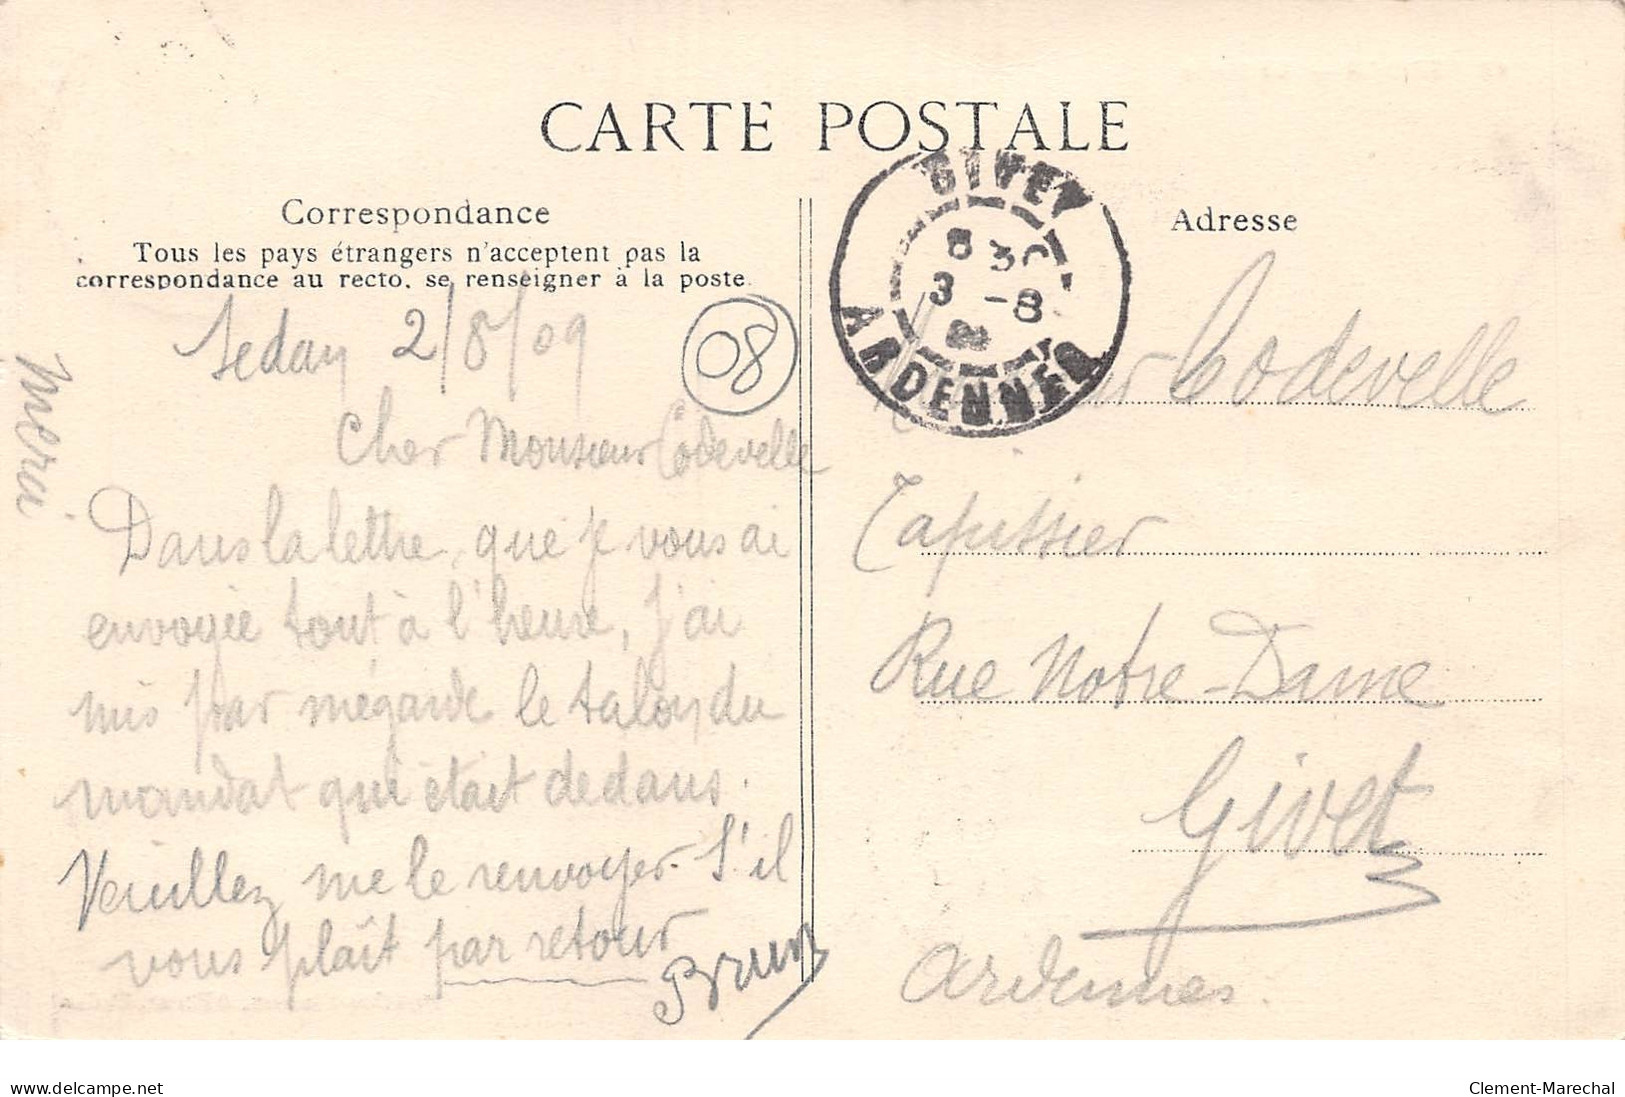 CARTE POSTALE
Correspondance
Tous les pays étrangers n'acceptent pas la
correspondance au recto, se renseigner à la poste.
Sedan 2/8/09
08
Cher Monsieur Codevelle
Dans la lettre, que je vous ai
envoyée tout à l'heure, j'ai
mis par mégarde le talon du
mandat qui était dedans.
Veuillez me le renvoyer. S'il
vous plaît par retour
Brun
Merci
GIVET
8 30
3 -8
ARDENNES
Adresse
Codevelle
Tapissier
Rue Notre-Dame
Givet
Ardennes.
delcampe.net
Clement-Marechal